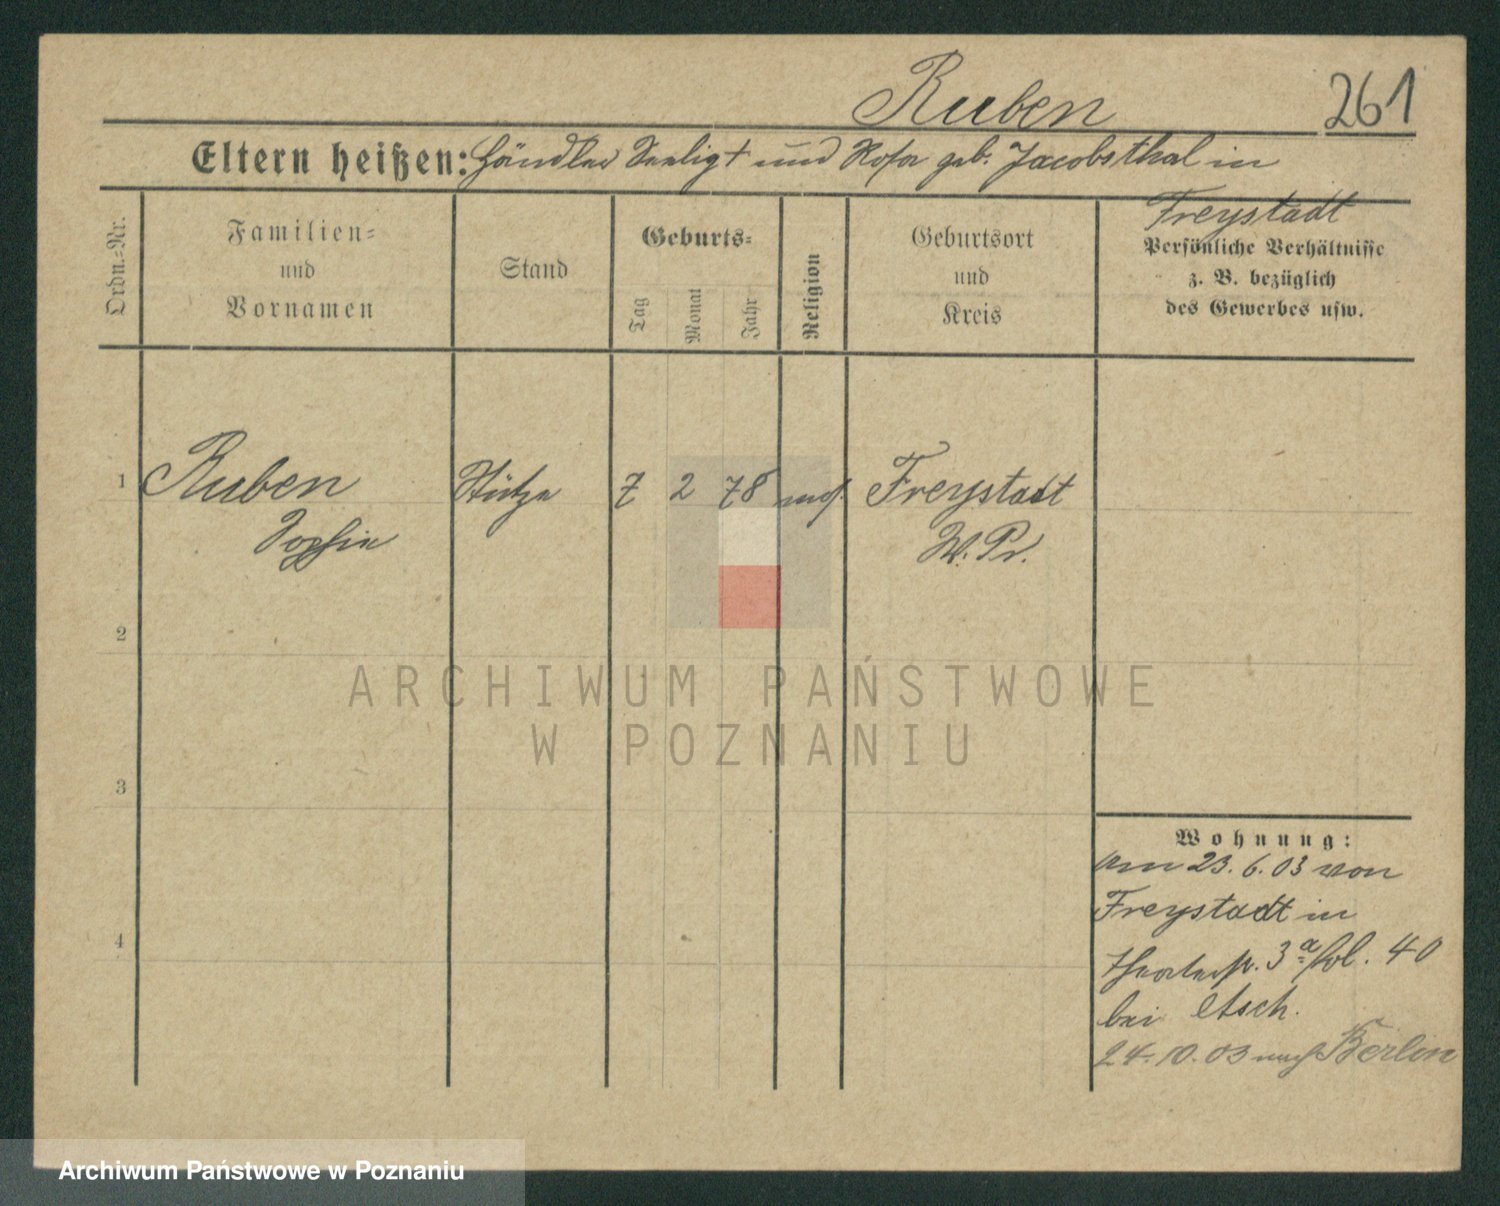 Ruben 261
Eltern heißen: Händler Seeligt und Rosa geb. Jacobsthal in
Freystadt
Ordn.=Nr.
Familien=
und
Vornamen
Stand
Geburts=
Tag
Monat
Jahr
Religion
Geburtsort
und
Kreis
Persönliche Verhältnisse
z. B. bezüglich
des Gewerbes usw.
1 Ruben Stütze 7 2 78 mos. Freystadt
Sophie W. Pr.
2
ARCHIWUM PAŃSTWOWE
W POZNANIU
3
Wohnung:
Am 23. 6. 03 von
Freystadt in
4
3a 40
bei Asch.
24. 10. 03 nach Berlin
Archiwum Państwowe w Poznaniu